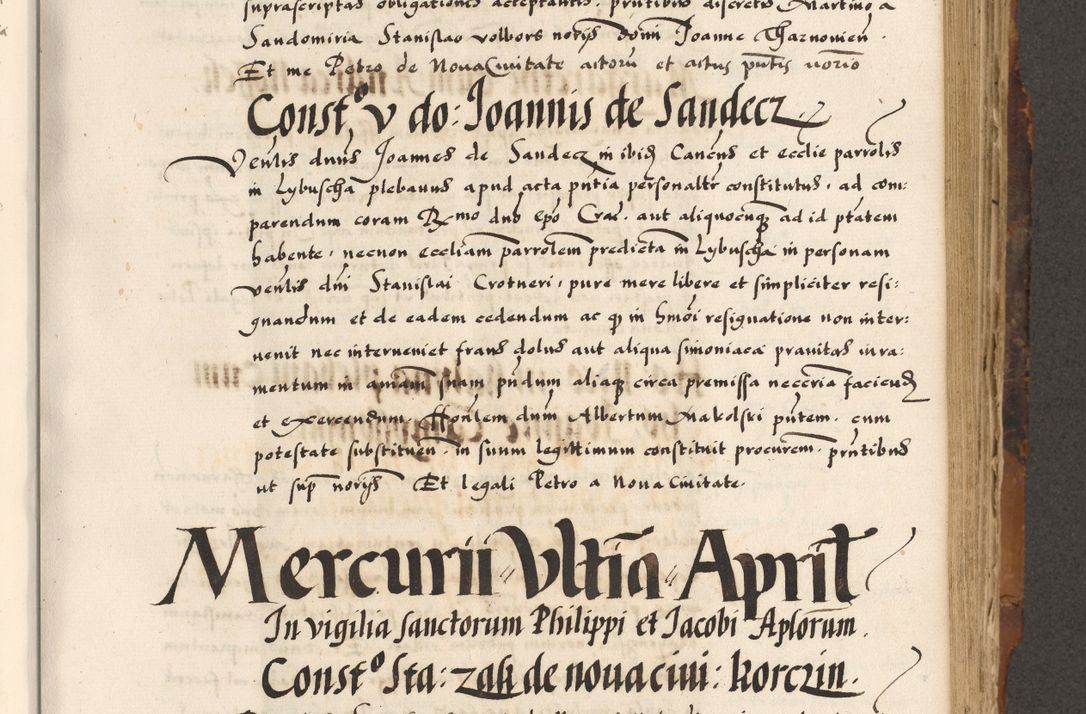 suprascriptas obligationes acceptantis. pntibus discretis Martino a
Sandomiria Stanislao volbors norijs domi Joanne Tharnovien.
Et me Petro de Nova Civitate actoru et actus pntis norio
Constº v do: Joannis de Sandecz.
Venlis dnus Joannes de Sandecz in ibid Cancus et ecclie parrolis
in Lybuscha plebanus apud acta pntia personaltr constitutus, ad com:
parendum coram Rmo dno epo Crac. aut aliquocunq ad id ptatem
habente, necnon eccliam parrolem predicta in Lybuscha in personam
venlis dni Stanislai Crotneri, pure mere libere et simpliciter resi:
gnandum et de eadem cedendum ac q in hmoi resignatione non inter:
uenit nec interueniet fraus dolus aut aliqua simoniaca prauitas iura:
mentum in aniam suam pndum aliaq circa premissa necceria faciend
et exercendum. Honlem dum Albertum Makolski pntem. cum
potestate substituen. in suum legittimum constituit procurem. pntibus
ut sup norijs Et legali Petro a Nova Civitate.
Mercurii Vltia April
In vigilia sanctorum Philippi et Jacobi Aplorum.
Constº Sta: zak de nouaciui: korczin.